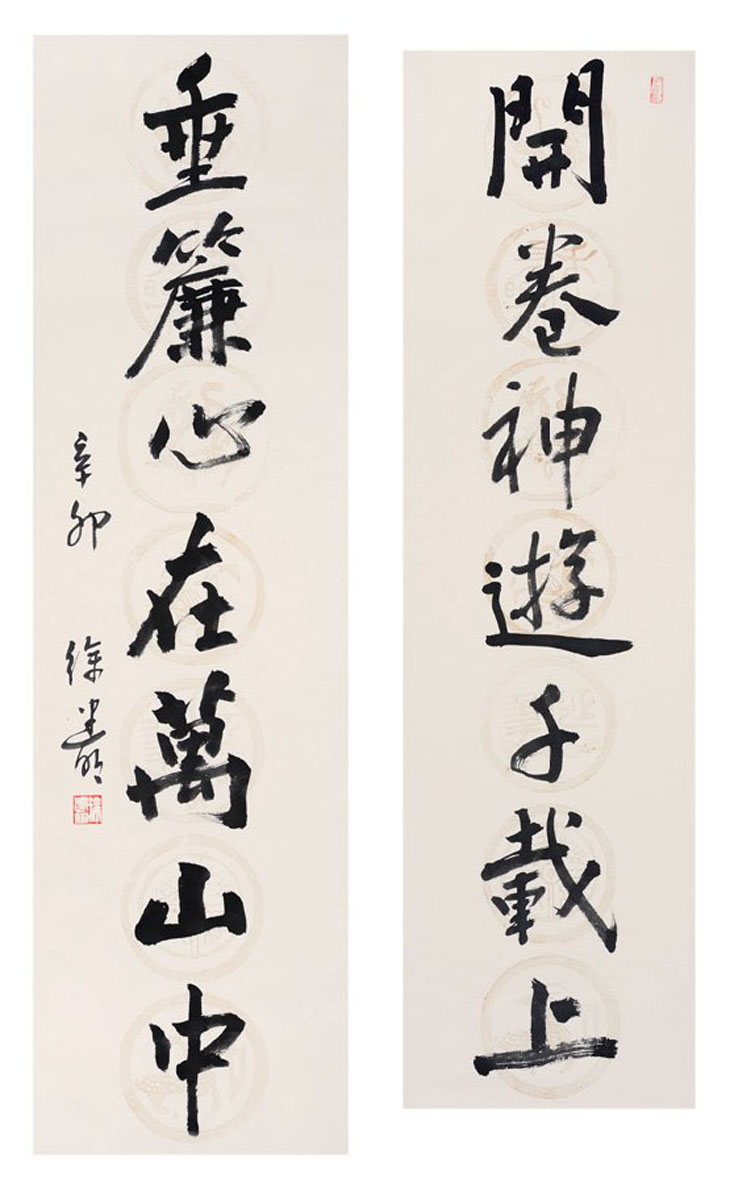 開卷神遊千載上
垂簾心在萬山中
辛卯
徐建明